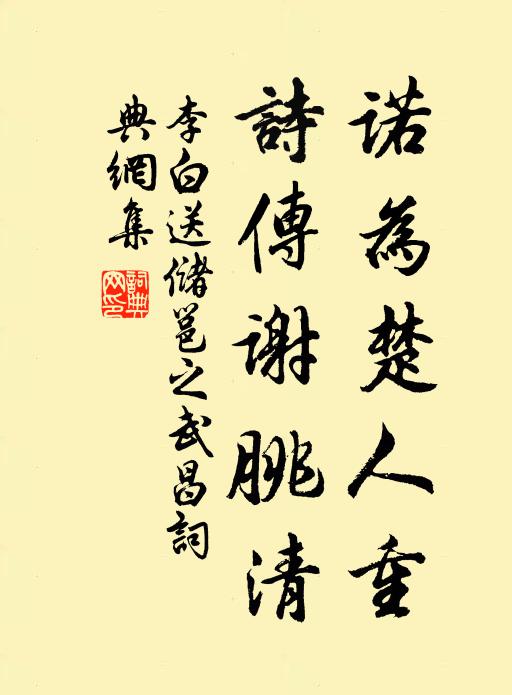 諾為楚人重
詩傳謝朓清
李白送儲邕之武昌詞
典網集
詞典
网印